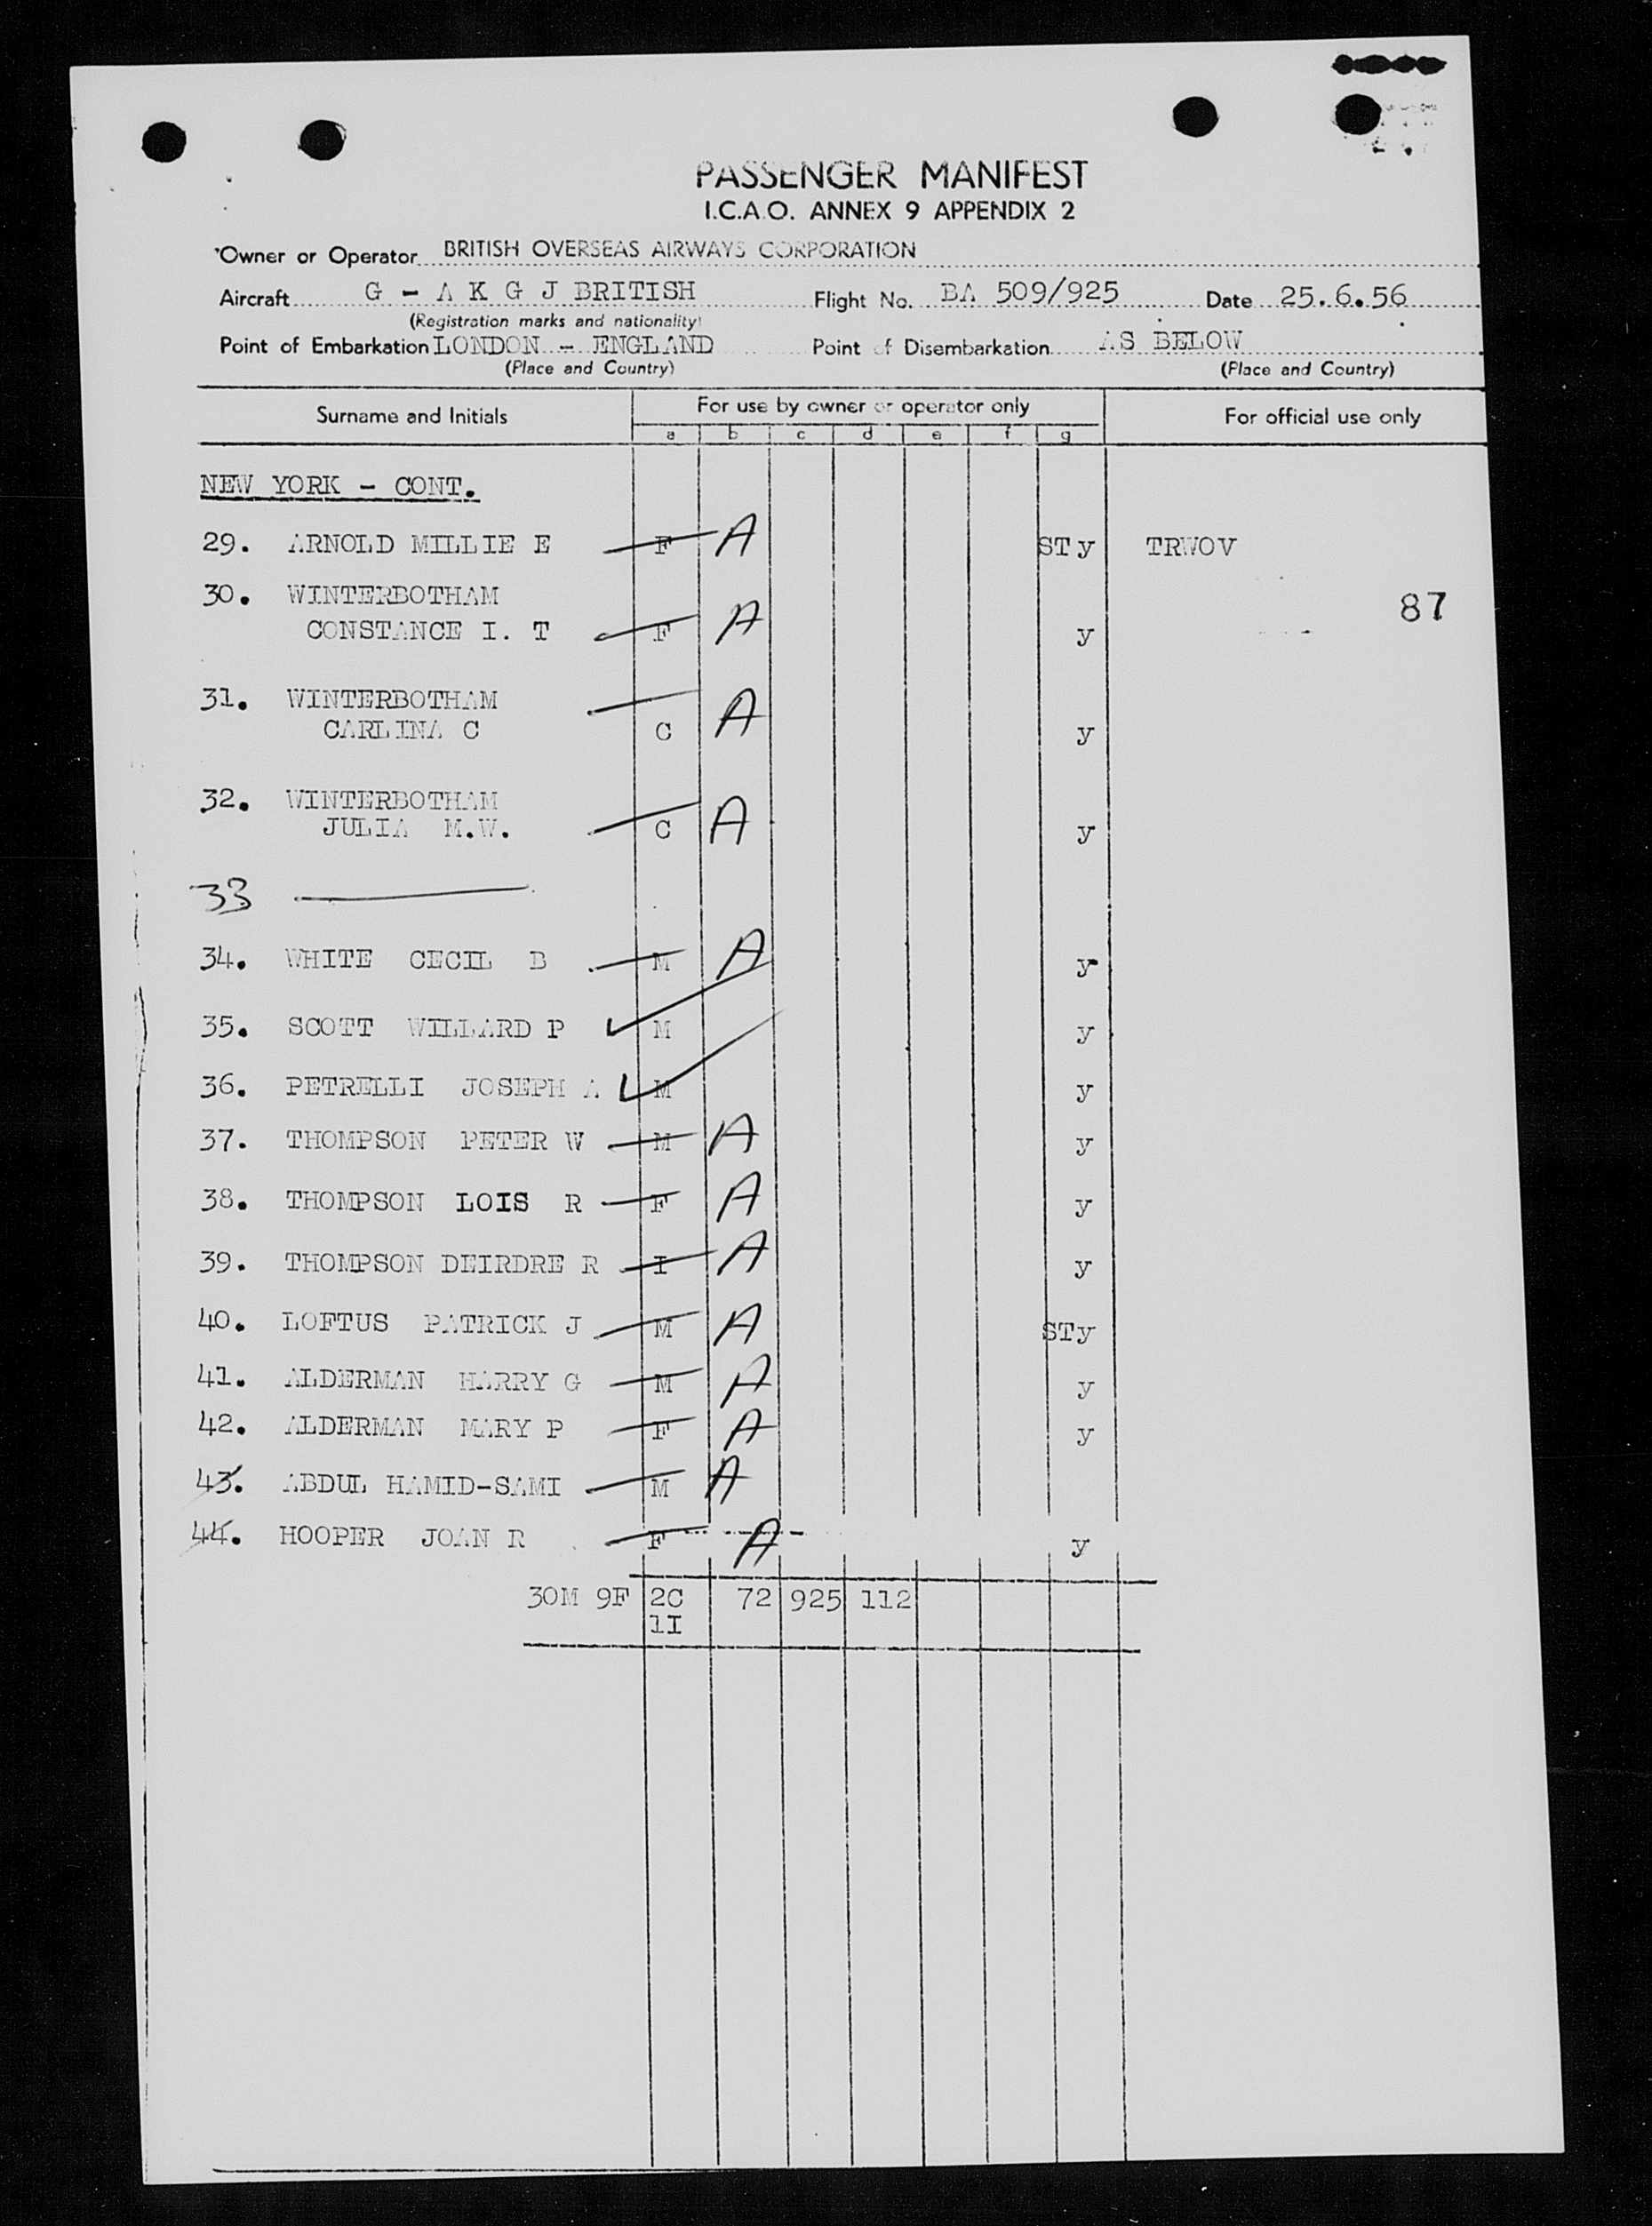 PASSENGER MANIFEST
I.C.A.O. ANNEX 9 APPENDIX 2
Owner or Operator BRITISH OVERSEAS AIRWAYS CORPORATION
Aircraft G - A K G J BRITISH Flight No. BA 509/925 Date 25.6.56
(Registration marks and nationality)
Point of Embarkation LONDON - ENGLAND Point of Disembarkation AS BELOW
(Place and Country) (Place and Country)
Surname and Initials For use by owner or operator only For official use only
a b c d e f g
NEW YORK - CONT.
29. ARNOLD MILLIE E F A STy TRWOV
30. WINTERBOTHAM
87
CONSTANCE I. T F A y
31. WINTERBOTHAM
CARLINA C C A y
32. WINTERBOTHAM
JULIA M.W. C A y
33
34. WHITE CECIL B M A y
35. SCOTT WILLARD P M y
36. PETRELLI JOSEPH A M y
37. THOMPSON PETER W M A y
38. THOMPSON LOIS R F A y
39. THOMPSON DEIRDRE R I A y
40. LOFTUS PATRICK J M A STy
41. ALDERMAN HARRY G M A y
42. ALDERMAN MARY P F A y
43. ABDUL HAMID-SAMI M A
44. HOOPER JOAN R F A y
30M 9F 2C 72 925 112
1I